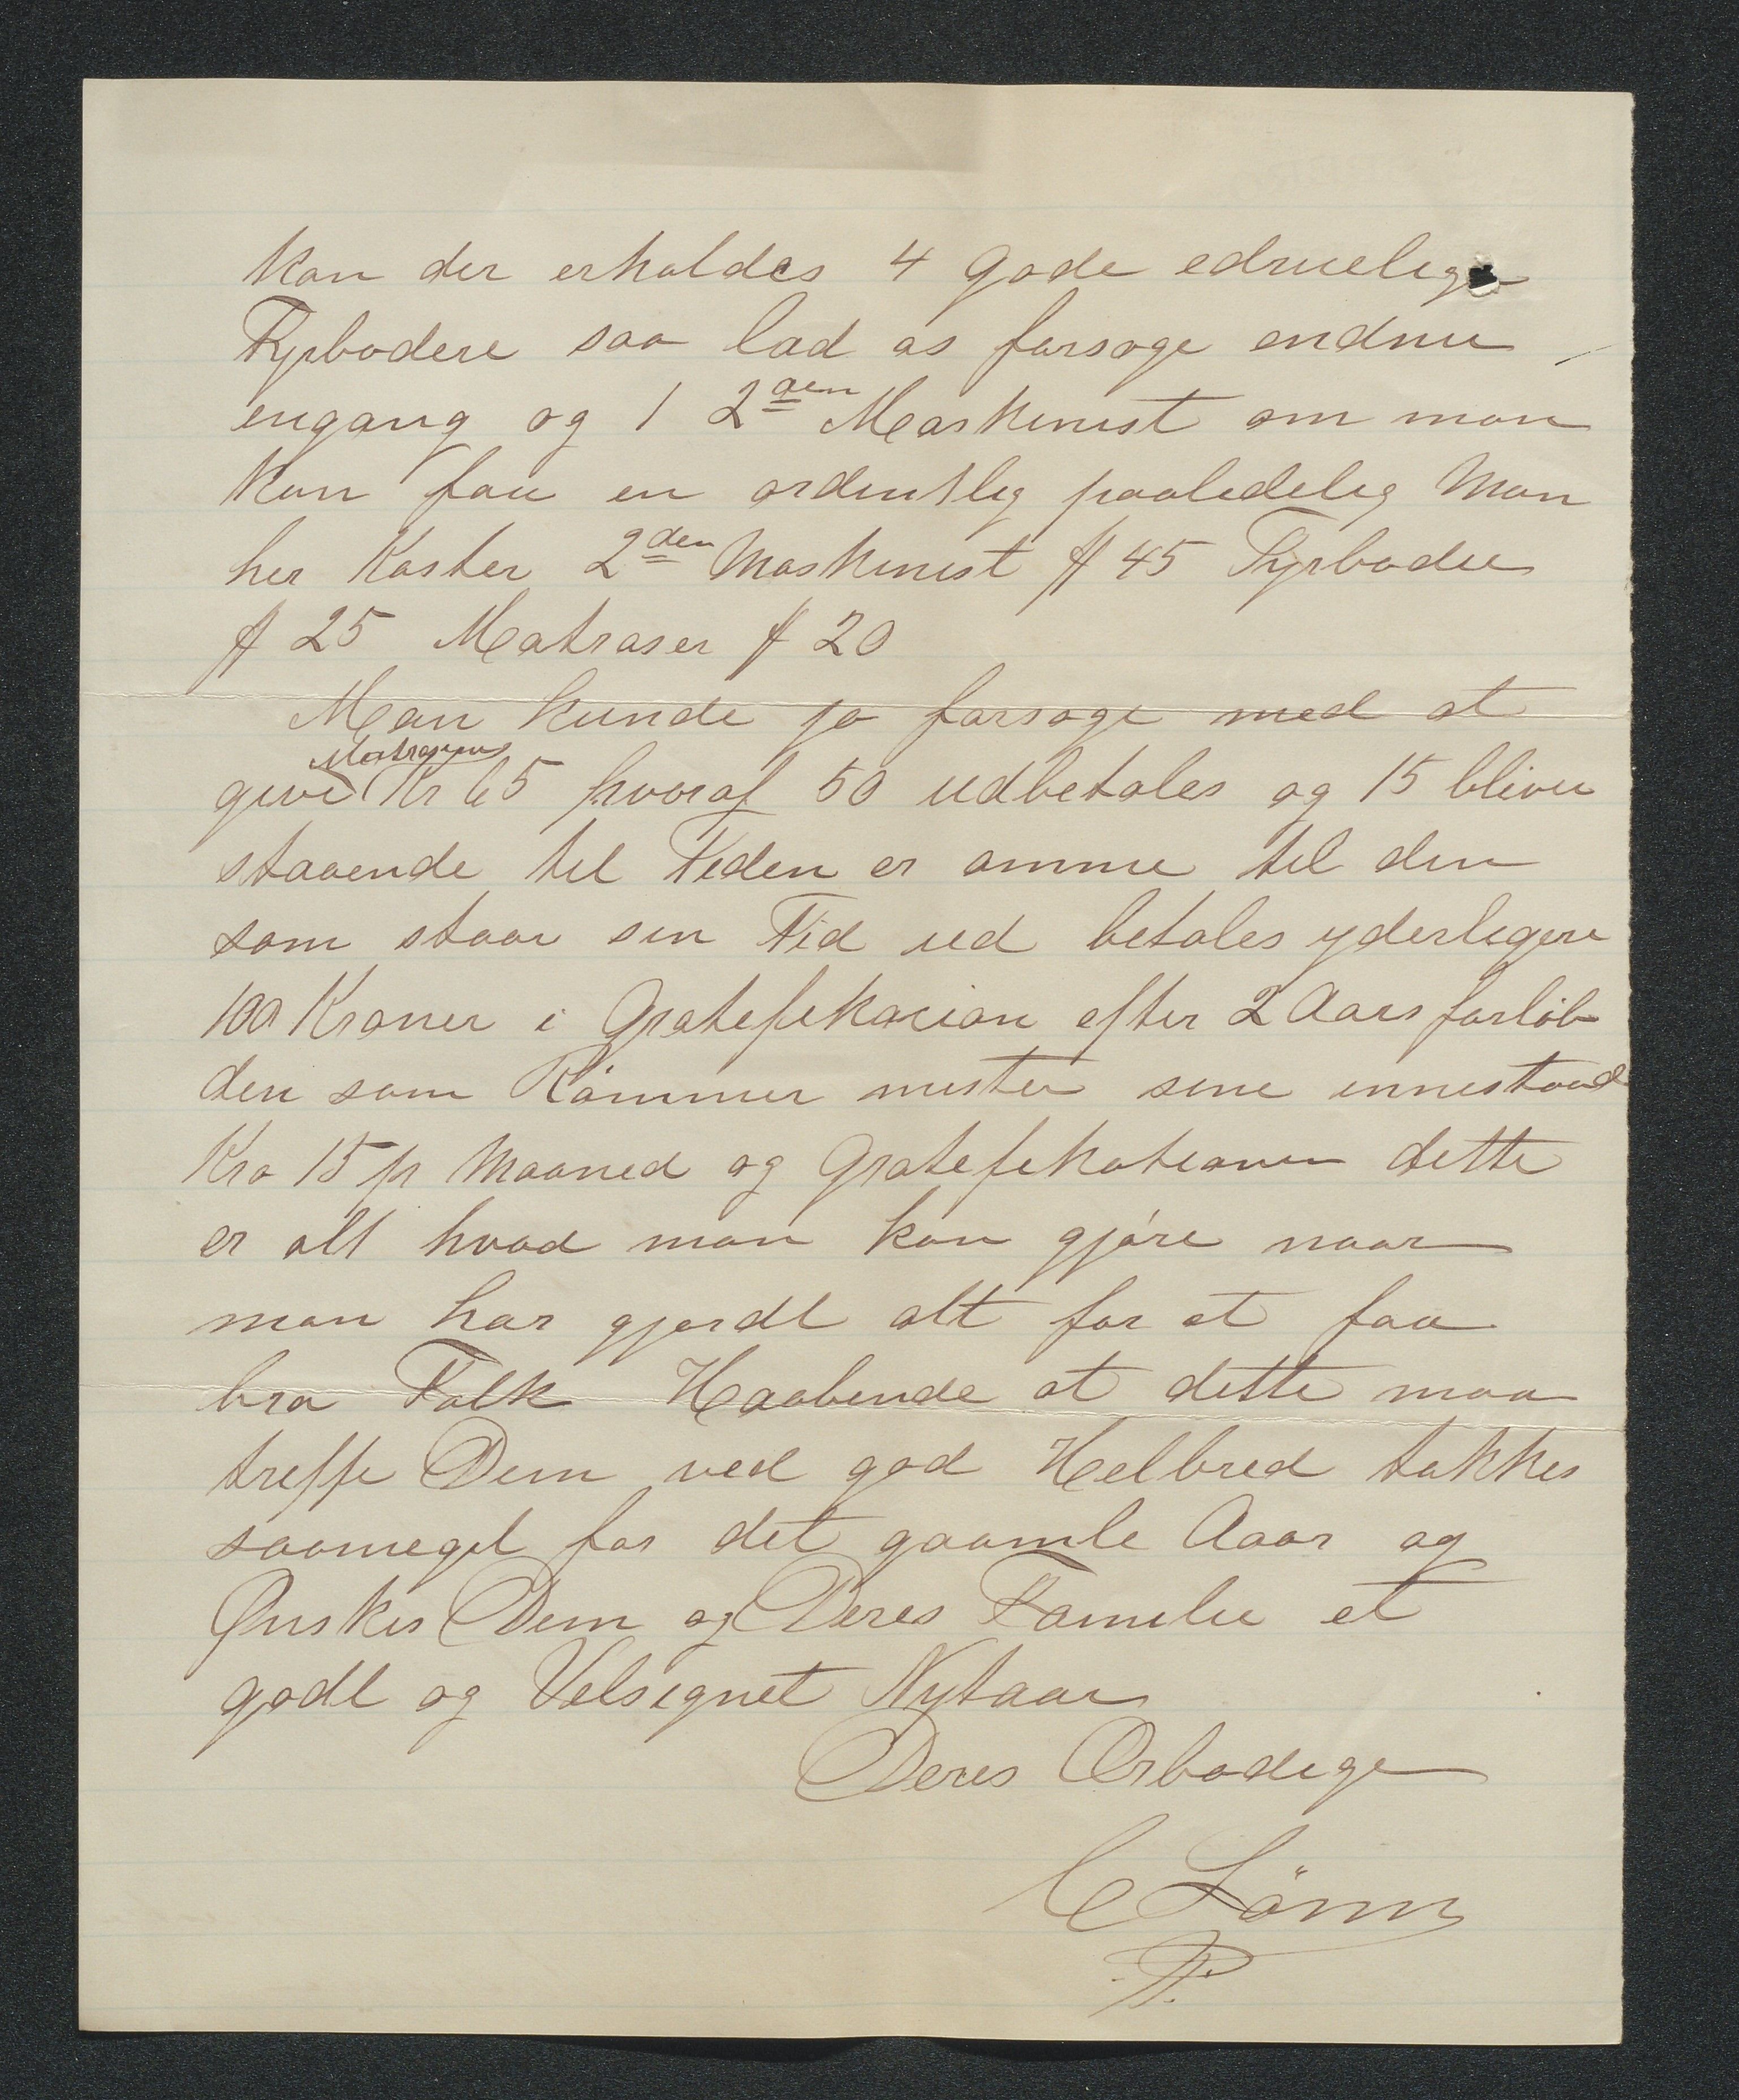 kan der erholdes 4 gode edruelige
Fyrbodere saa lad os forsøge endnu
engang og 1 2den Maskinist om man
kan faa en ordentlig paaledelig Man
her koster 2den Maskinist $ 45 Fyrboder
$ 25 Matraser $ 20
Man kunde jo forsøge med at
Matroserne
give Kr 65 hvoraf 50 udbetales og 15 bliver
staaende til Tiden er omme til den
som staar sin Tid ud betales yderligere
100 Kroner i Gratefikacion efter 2 Aars forløb
den som Rømmer mister sine innestaad
Kro 15 pr Maaned og Gratefikationen dette
er alt hvad man kan gjøre naar
man har gjordt alt for at faa
bra Folk Haabende at dette maa
treffe Dem ved god Helbred takkes
saameget for det gaamle Aaar og
Ønskes Dem og Deres Familie et
godt og Velsignet Nytaar
Deres Ærbødige
C Lönn